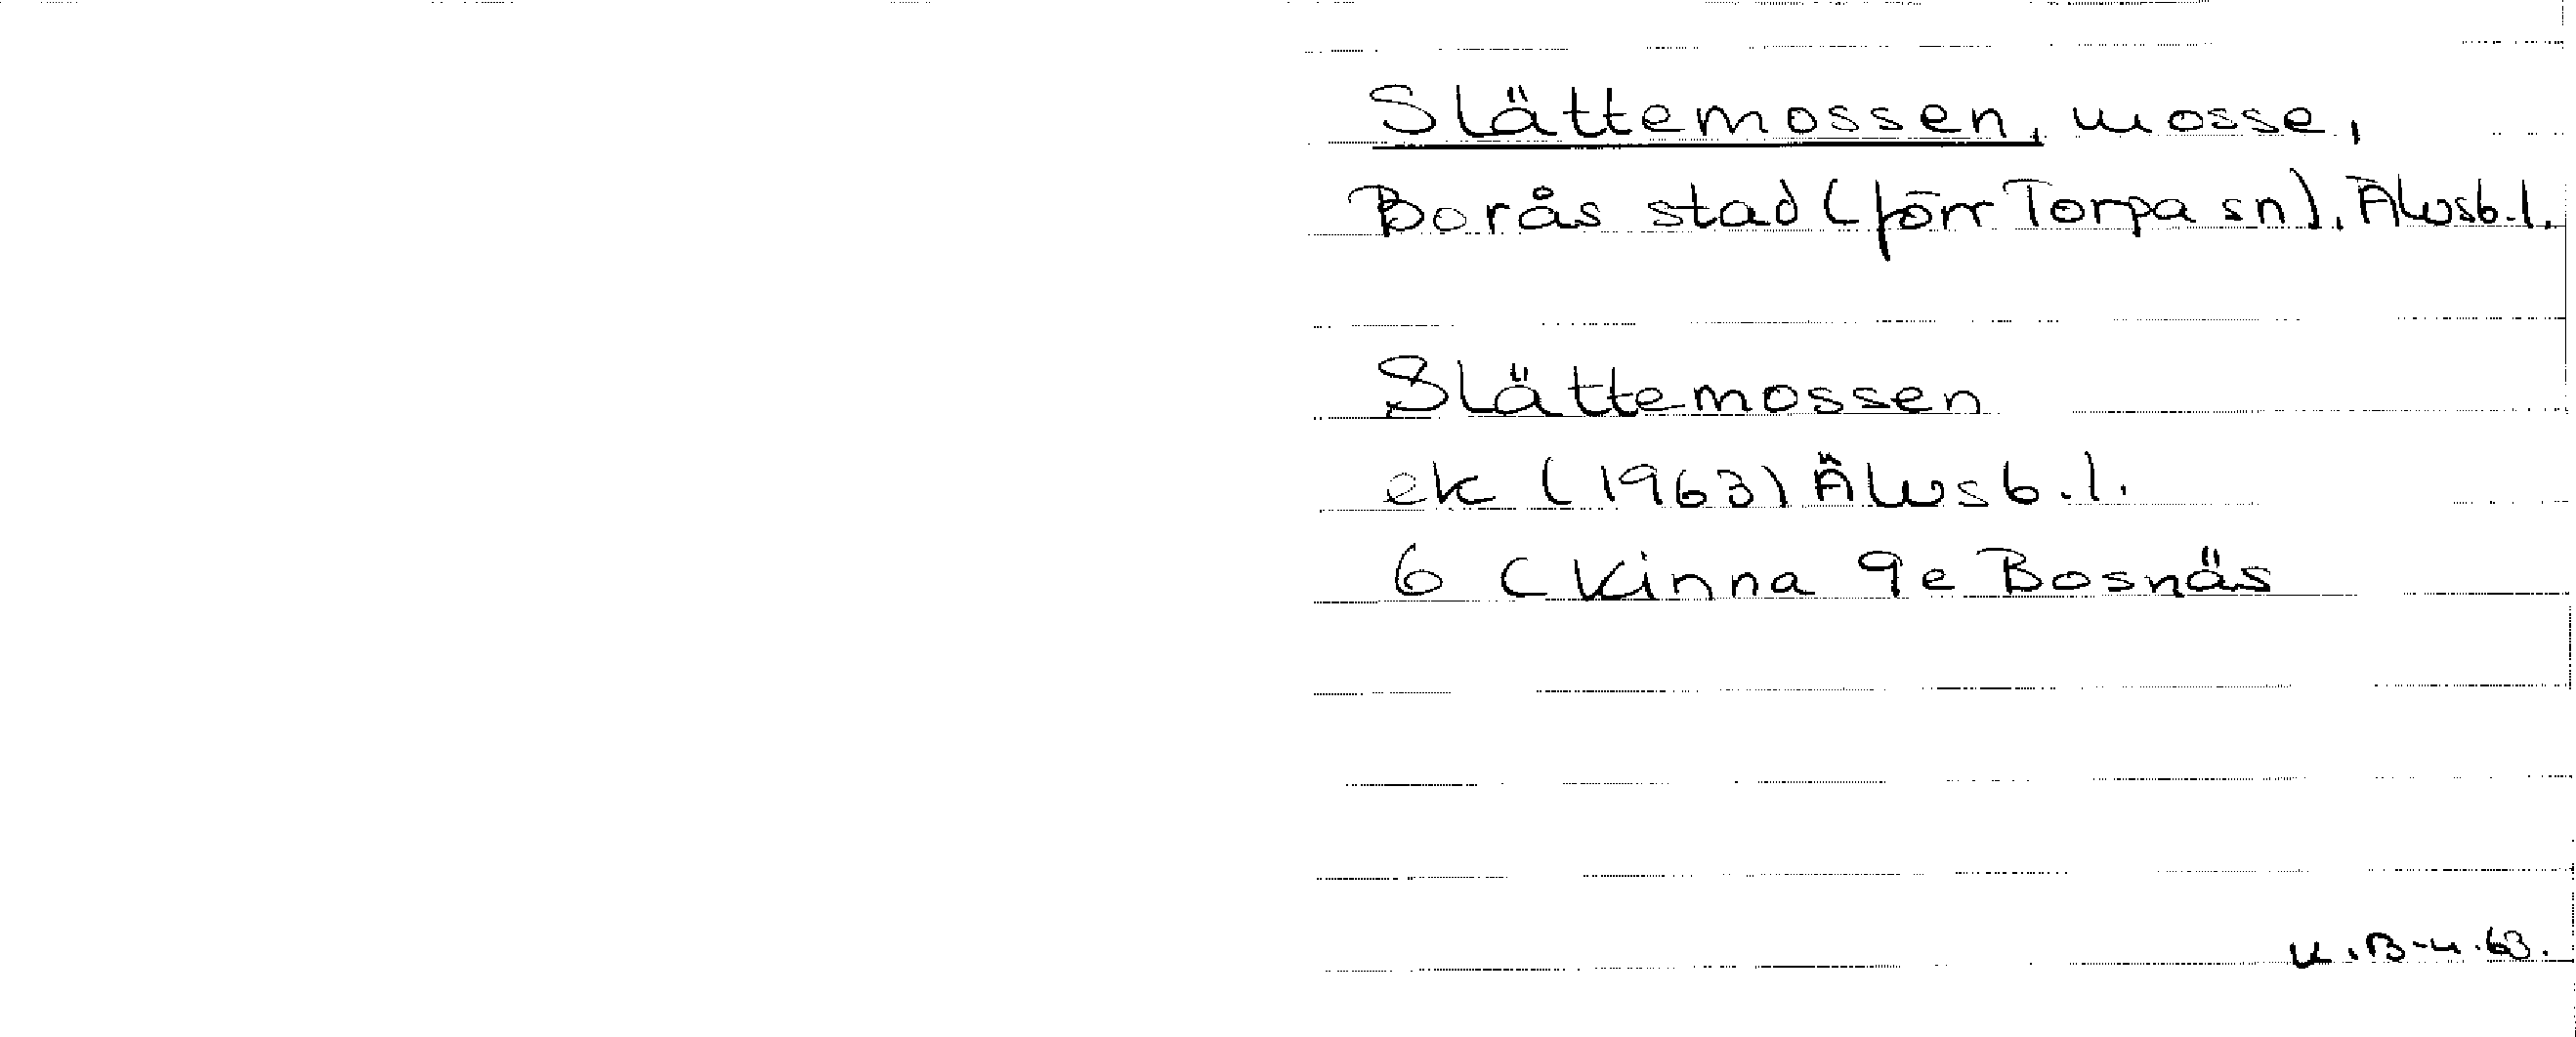 Slättemossen, mosse,
Borås stad (förr Torpa sn). Älvsb.l.
Slättemossen
ek (1963) Älvsb.l.
6 C Kinna 9e Bosnäs
K.B-n.63.